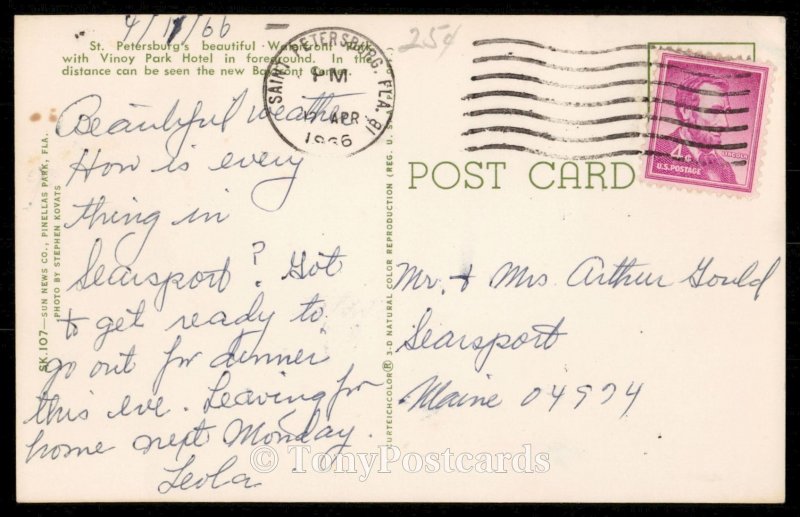 4/11/66
25¢
St. Petersburg's beautiful Waterfront Park
with Vinoy Park Hotel in foreground. In the
distance can be seen the new Bayfront Center.
SAINT PETERSBURG, FLA. 81
PM
APR
1966
4¢
LINCOLN
U.S. POSTAGE
POST CARD
Beautiful weather
How is every
thing in
Searsport? Got
to get ready to
go out for dinner
this eve. Leaving for
home next Monday.
Leola
Mr. + Mrs Arthur Gould
Searsport
Maine 04974
SK.107—SUN NEWS CO., PINELLAS PARK, FLA.
PHOTO BY STEPHEN KOVATS
CURTEICHCOLOR® 3-D NATURAL COLOR REPRODUCTION (REG. U.S.
© TonyPostcards